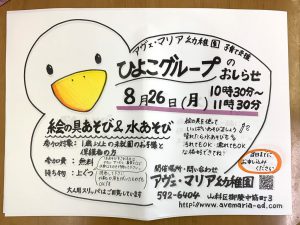 アヴェ・マリア幼稚園 子育て支援
ひよこグループのおしらせ
8月26日(月) 10時30分~11時30分
絵の具あそび&水あそび
参加対象:1歳以上の未就園のお子様と保護者の方
参加費:無料
持ち物:上ぐつ
大人用スリッパはご用意しています
絵の具を使って
いっぱいあそびましょう
汚れてもOK!濡れてもOK
開催場所・問い合わせ
アヴェ・マリア幼稚園
592-6404 山科区御陵中筋町3
http://www.avemaria-ed.com
お申し込み
ください